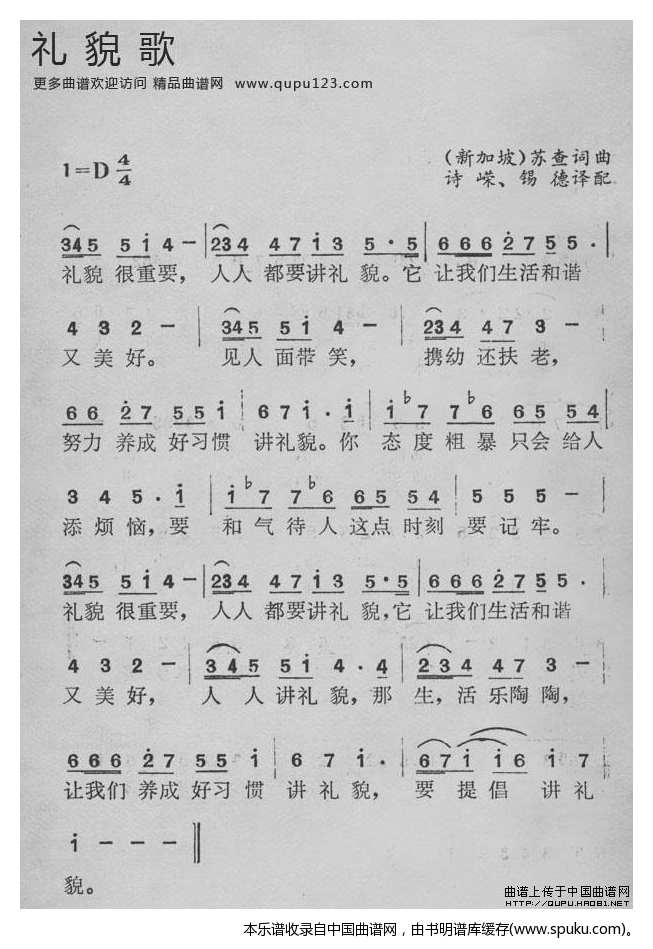 礼貌歌
更多曲谱欢迎访问 精品曲谱网 www.qupu123.com
1=D 4/4
(新加坡)苏查词曲
诗嵘、锡德译配
345 51 4 - | 234 47 13 5·5 | 666 27 55 · |
礼貌 很重要， 人人 都要讲礼 貌。它 让我们生活和谐
4 3 2 - | 345 51 4 - | 234 47 3 -
又美好。 见人 面带 笑， 携幼 还扶 老，
66 27 551 | 671 · 1 | 1♭7 7♭6 65 54 |
努力 养成 好习惯 讲礼貌。你 态度粗暴只会给人
3 4 5 · 1 | 1♭7 7♭6 65 54 | 5 5 5 -
添烦恼，要 和气待人这点时刻 要记牢。
345 51 4 - | 234 47 13 5·5 | 666 27 55 · |
礼貌 很重要， 人人 都要讲礼 貌，它 让我们生活和谐
4 3 2 - | 345 51 4 · 4 | 234 47 3 -
又美好， 人人讲礼貌，那 生，活乐陶陶，
666 27 55 1 | 6 7 1 · | 671 16 1 7
让我们 养成 好习 惯 讲礼貌， 要提倡 讲礼
1 - - - ‖
貌。
曲谱上传于中国曲谱网
HTTP://QUPU.HAO81.NET
本乐谱收录自中国曲谱网，由书明谱库缓存(www.spuku.com)。